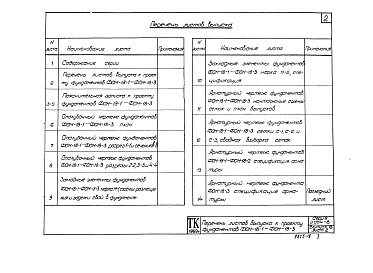 2
Перечень листов выпуска
N листа
Наименование листа
Примечания
1
Содержание серии
2
Перечень листов выпуска к проек-
ту фундаментов ФОН-18-1 – ФОН-18-3
3-5
Пояснительная записка к проекту
фундаментов ФОН-18-1 – ФОН-18-3
6
Опалубочный чертеж фундаментов
ФОН-18-1 – ФОН-18-3 план
7
Опалубочный чертеж фундаментов
8
Опалубочный чертеж фундаментов
ФОН-18-1 – ФОН-18-3 разрезы 2-2, 3-3 и 4-4
9
Закладные элементы фундаментов
N листа
Наименование листа
Примечания
10
Закладные элементы фундаментов
ФОН-18-1 – ФОН-18-3 марка
цификация
11
Арматурный чертеж фундаментов
ФОН-18-1 – ФОН-18-3
и план выпусков
12
Арматурный чертеж фундаментов
ФОН-18-1 – ФОН-18-3 сетки С-1, С-2 и
С-3, сводная выборка сеток
13
Арматурный чертеж фундаментов
спецификация арма-
туры
14
Арматурный чертеж фундамента
ФОН-18-3 спецификация арма-
туры
Последний
лист
ТК
Перечень листов выпуска к проекту
фундаментов ФОН-18-1 – ФОН-18-3
Серия
Лист 2
3